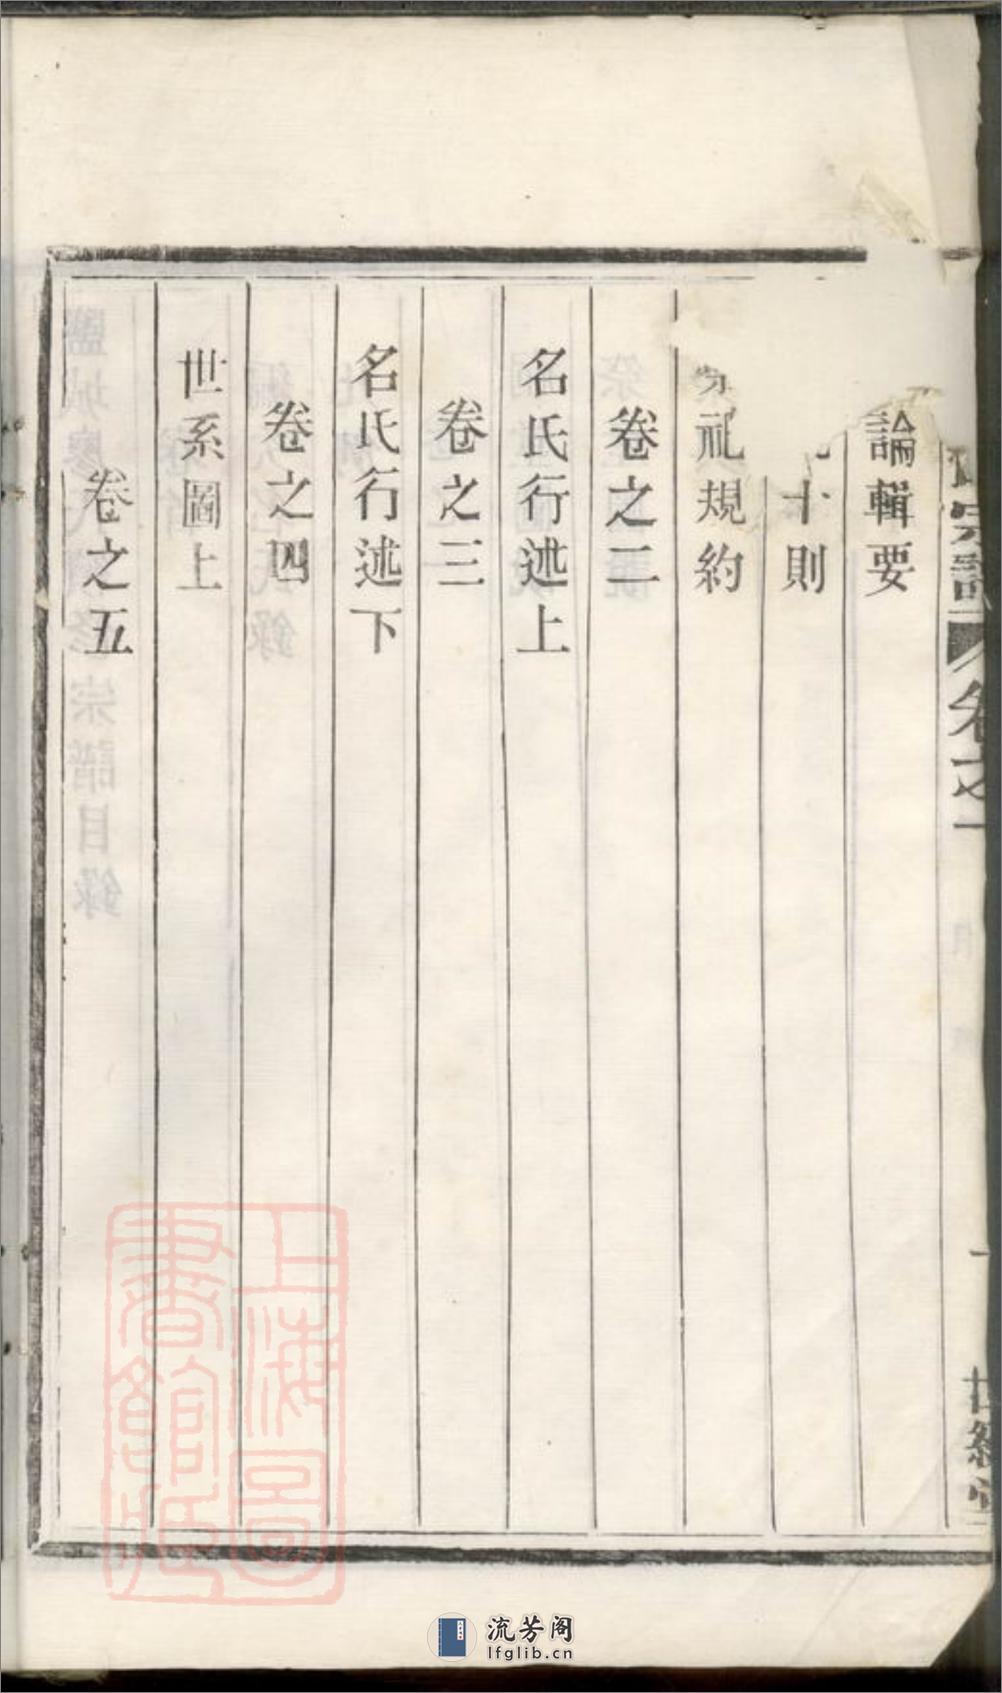 宗譜
卷之一
一
世綸堂
論輯要
十則
祀規約
卷之二
名氏行述上
卷之三
名氏行述下
卷之四
世系圖上
卷之五
上海圖
書館藏
流芳阁
lfglib.cn